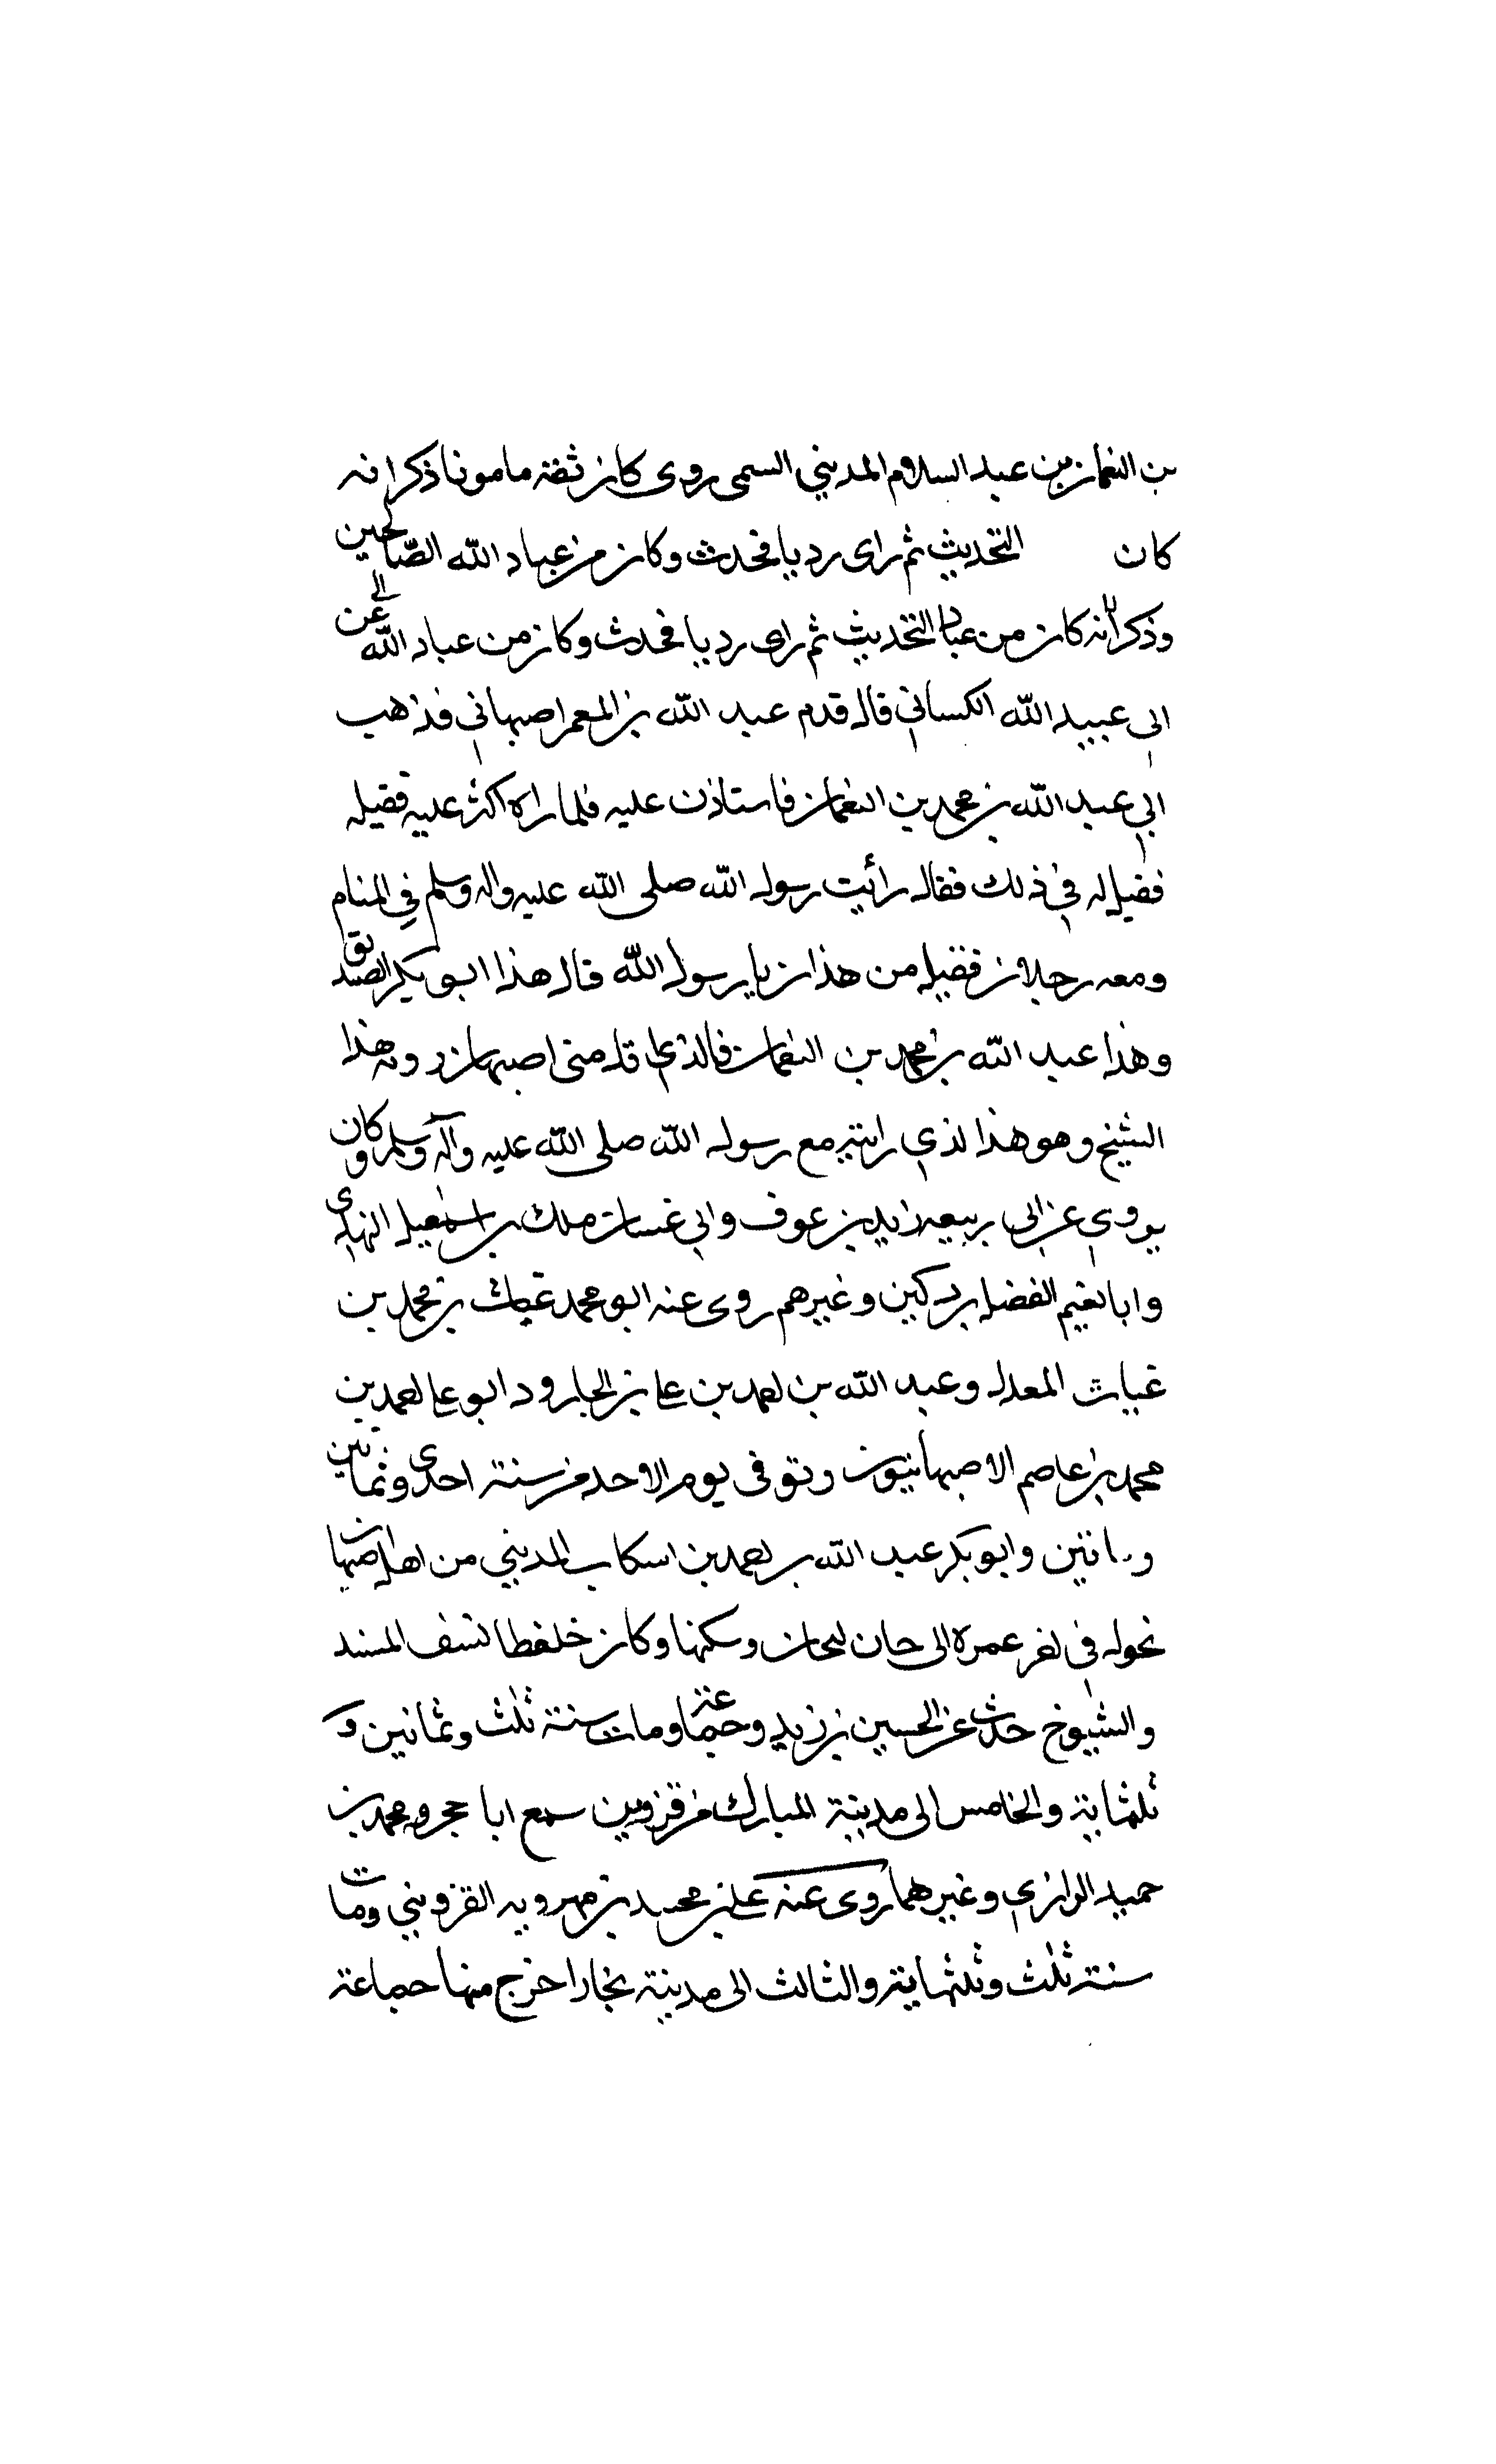 بن النعمان بن عبد السلام المديني السمى روى كان ثقة مامونا ذكر انه
كان التحديث ثم راى رديا فحدث وكان من عباد الله الصالحين
وذكر انه كان من عباد التحديث ثم راى رديا فحدث وكان من عباد الله عن
ابى عبيد الله الكسانى قال قدم عبد الله بن المعمر اصبهانى فذهب
ابى عبد الله بن محمد بن النعمان فاستاذن عليه فلما راه اكثر عليه فقيل
فقيل له في ذلك فقال رأيت رسول الله صلى الله عليه واله وسلم في المنام
ومعه رجلان فقيل من هذان يا رسول الله قال هذا ابو بكر الصديق
وهذا عبد الله بن محمد بن النعمان فالذى قد منى اصبهان رونه هذا
الشيخ وهو هذا لذي راينته مع رسول الله صلى الله عليه وآله وسلم وكان
يروي عن ابى ربيعة زيد بن عوف وابي غسان ملك بن اسمعيل النهدى
وابا نعيم الفضل بن دكين وغيرهم روى عنه ابو محمد غياث بن محمد بن
غياث المعدل وعبد الله بن احمد بن على بن الجارود ابو على احمد بن
محمد بن عاصم الاصبهانيون وتوفى يوم الاحد من سنة احدى وثمانين
وماتين وابو بكر عبد الله بن احمد بن اسكاب المديني من اهل اصبهان
نحول فى اخر عمره الى حان لبحان وسكنها وكان خلفطا لتنف المسند
والشيوخ حدث عن الحسين بن زيد وجماعة ومات سنة ثلث وثمانين و
ثلثماية والخامس الى مدينة المبارك من قزوين سمع ابا حجر ومحمد بن
حميد الرازي وغيرهما روى عنه على بن محمد بن مهرويه القزويني ومات
سنة ثلث وثلثماية والثالث الى مدينة بخارا خرج منها جماعة